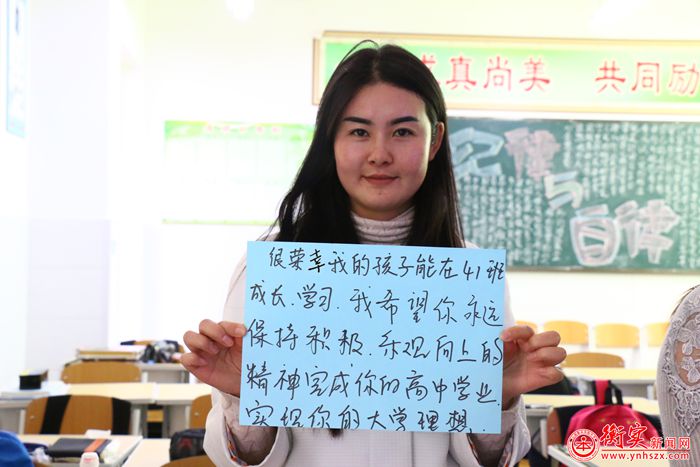 求真尚美 共同励
自律
与
自律
很荣幸我的孩子能在41班
成长.学习.我希望你永远
保持积极.乐观向上的
精神完成你的高中学业.
实现你的大学理想.
衡实新闻网
www.ynhszx.com